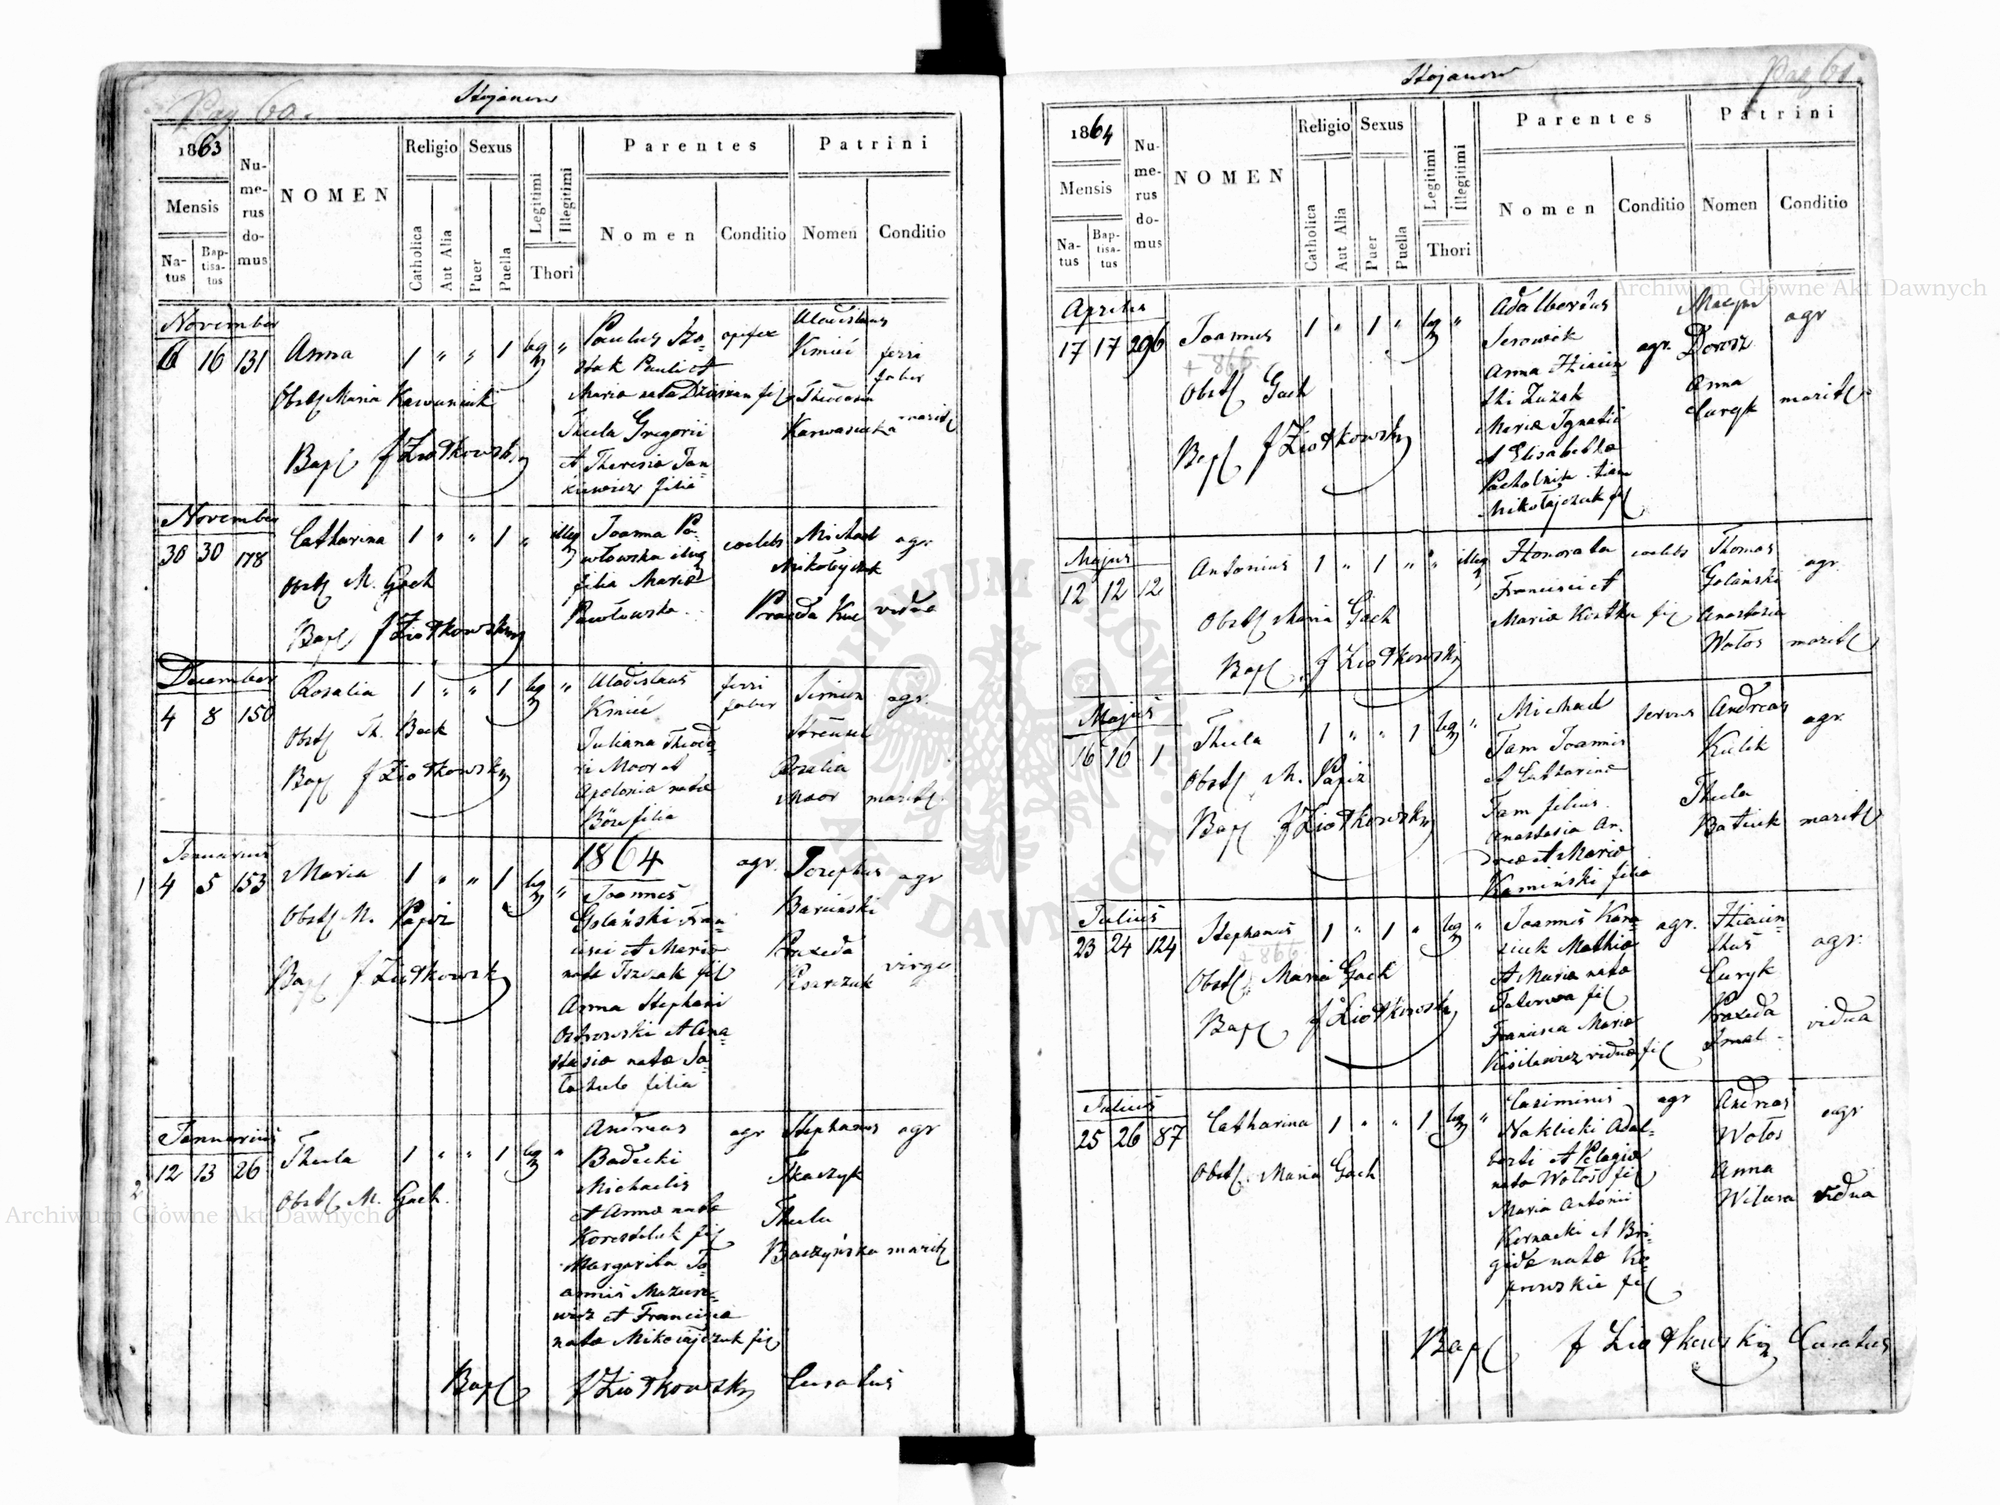 Pag 60.
Stojanow
1863
Mensis
Na-
tus
Bap-
tisa-
tus
Nu-
me-
rus
do-
mus
NOMEN
Religio
Catholica
Aut Alia
Sexus
Puer
Puella
Legitimi
Illegitimi
Thori
Parentes
Nomen
Conditio
Patrini
Nomen
Conditio
November
6 16 131
Anna
1 " " 1 leg "
Obst Maria Kawuniuk
Bap J Ziołkowski
Paulus Szo-
stak Pauli et
Maria nata
Thecla Gregorii
et Theresiæ Jan-
kiewicz filia
opifex
Uladislaus
Kmieć
ferri
faber
marit
November
30 30 178
Catharina
1 " " 1 " illeg
Obst M. Gach
Bap J Ziołkowski
Joanna Pa-
włowska illeg
filia Mariæ
Pawłowska
coelebs
Michael
Mikołajczuk
agr.
vidua
December
4 8 150
Rosalia
1 " " 1 leg "
Obst Th. Back
Bap J Ziołkowski
Uladislaus
Kmieć
Juliana Theodo-
ri Moor et
Apolonia nata
filia
ferri
faber
Simon
agr.
Rosalia
Moor
marit
Januarius
1 4 5 153
Maria
1 " " 1 leg "
Obst M. Papiż
Bap J Ziołkowski
1864
Joannes
Golański Fran-
cisci et Mariæ
nata fil
Anna Stephani
Ostrowski et Ana-
stasiæ nata
filia
agr.
Josephus
Barciński
agr
Praxeda
Pisarczuk
virgo
Januarius
2 12 13 26
Thecla
1 " " 1 leg "
Obst M. Gach.
Andreas
Badecki
Michaelis
et Anna nata
fil
Margarita Jo-
annis Mazure-
wicz et Francisca
nata Mikołajczuk fil
agr
Stephanus
Tkaczyk
agr
Thecla
Baczyńska marit
Bap J Ziołkowski Curatus
Pag 61.
Stojanow
1864
Mensis
Na-
tus
Bap-
tisa-
tus
Nu-
me-
rus
do-
mus
NOMEN
Religio
Catholica
Aut Alia
Sexus
Puer
Puella
Legitimi
Illegitimi
Thori
Parentes
Nomen
Conditio
Patrini
Nomen
Conditio
Aprilis
17 17 296
Joannes
+ 866
1 " 1 " leg "
Obst Gach
Bap J Ziołkowski
Adalbertus
Anna Hiacin-
thi
Maria Ignatii
et Elisabetha
Mikołajczuk fil
agr.
Dorosz
agr
Anna
Curyk
marit
Majus
12 12 12
Antonius
1 " 1 " " illeg
Obst Maria Gach
Bap J Ziołkowski
Honorata
Francisci et
Mariæ Kostka fil
coelebs
Thomas
Golański
agr.
Anastasia
Wołos marit
Majus
16 16 1
Thecla
1 " " 1 leg "
Obst M. Papiż
Bap J Ziołkowski
Michael
Tam Joannis
et Catharina
Tam filius.
Anastasia An-
dreæ et Mariæ
Kamiński filia
servus
Andreas
Kulik
agr.
Thecla
Batiuk marit
Julius
23 24 124
Stephanus
+ 866
1 " 1 " leg "
Obst Maria Gach
Bap J Ziołkowski
Joannes Kara-
siuk Mathiæ
et Mariæ nata
fil
Francisca Mariæ
Kisilewicz viduæ fil
agr.
Hiacin-
thus
Curyk
agr.
Praxeda
vidua
Julius
25 26 87
Catharina
1 " " 1 leg "
Obst Maria Gach
Casimirus
Naklicki Adal-
berti et Pelagiæ
nata Wołos fil
Maria Antonii
Kornacki et Bri-
gidæ nata
fil
agr
Andreas
Wołos
agr
Anna
vidua
Bap J Ziołkowski Curatus
Archiwum Główne Akt Dawnych
Archiwum Główne Akt Dawnych
ARCHIWUM GŁÓWNE AKT DAWNYCH